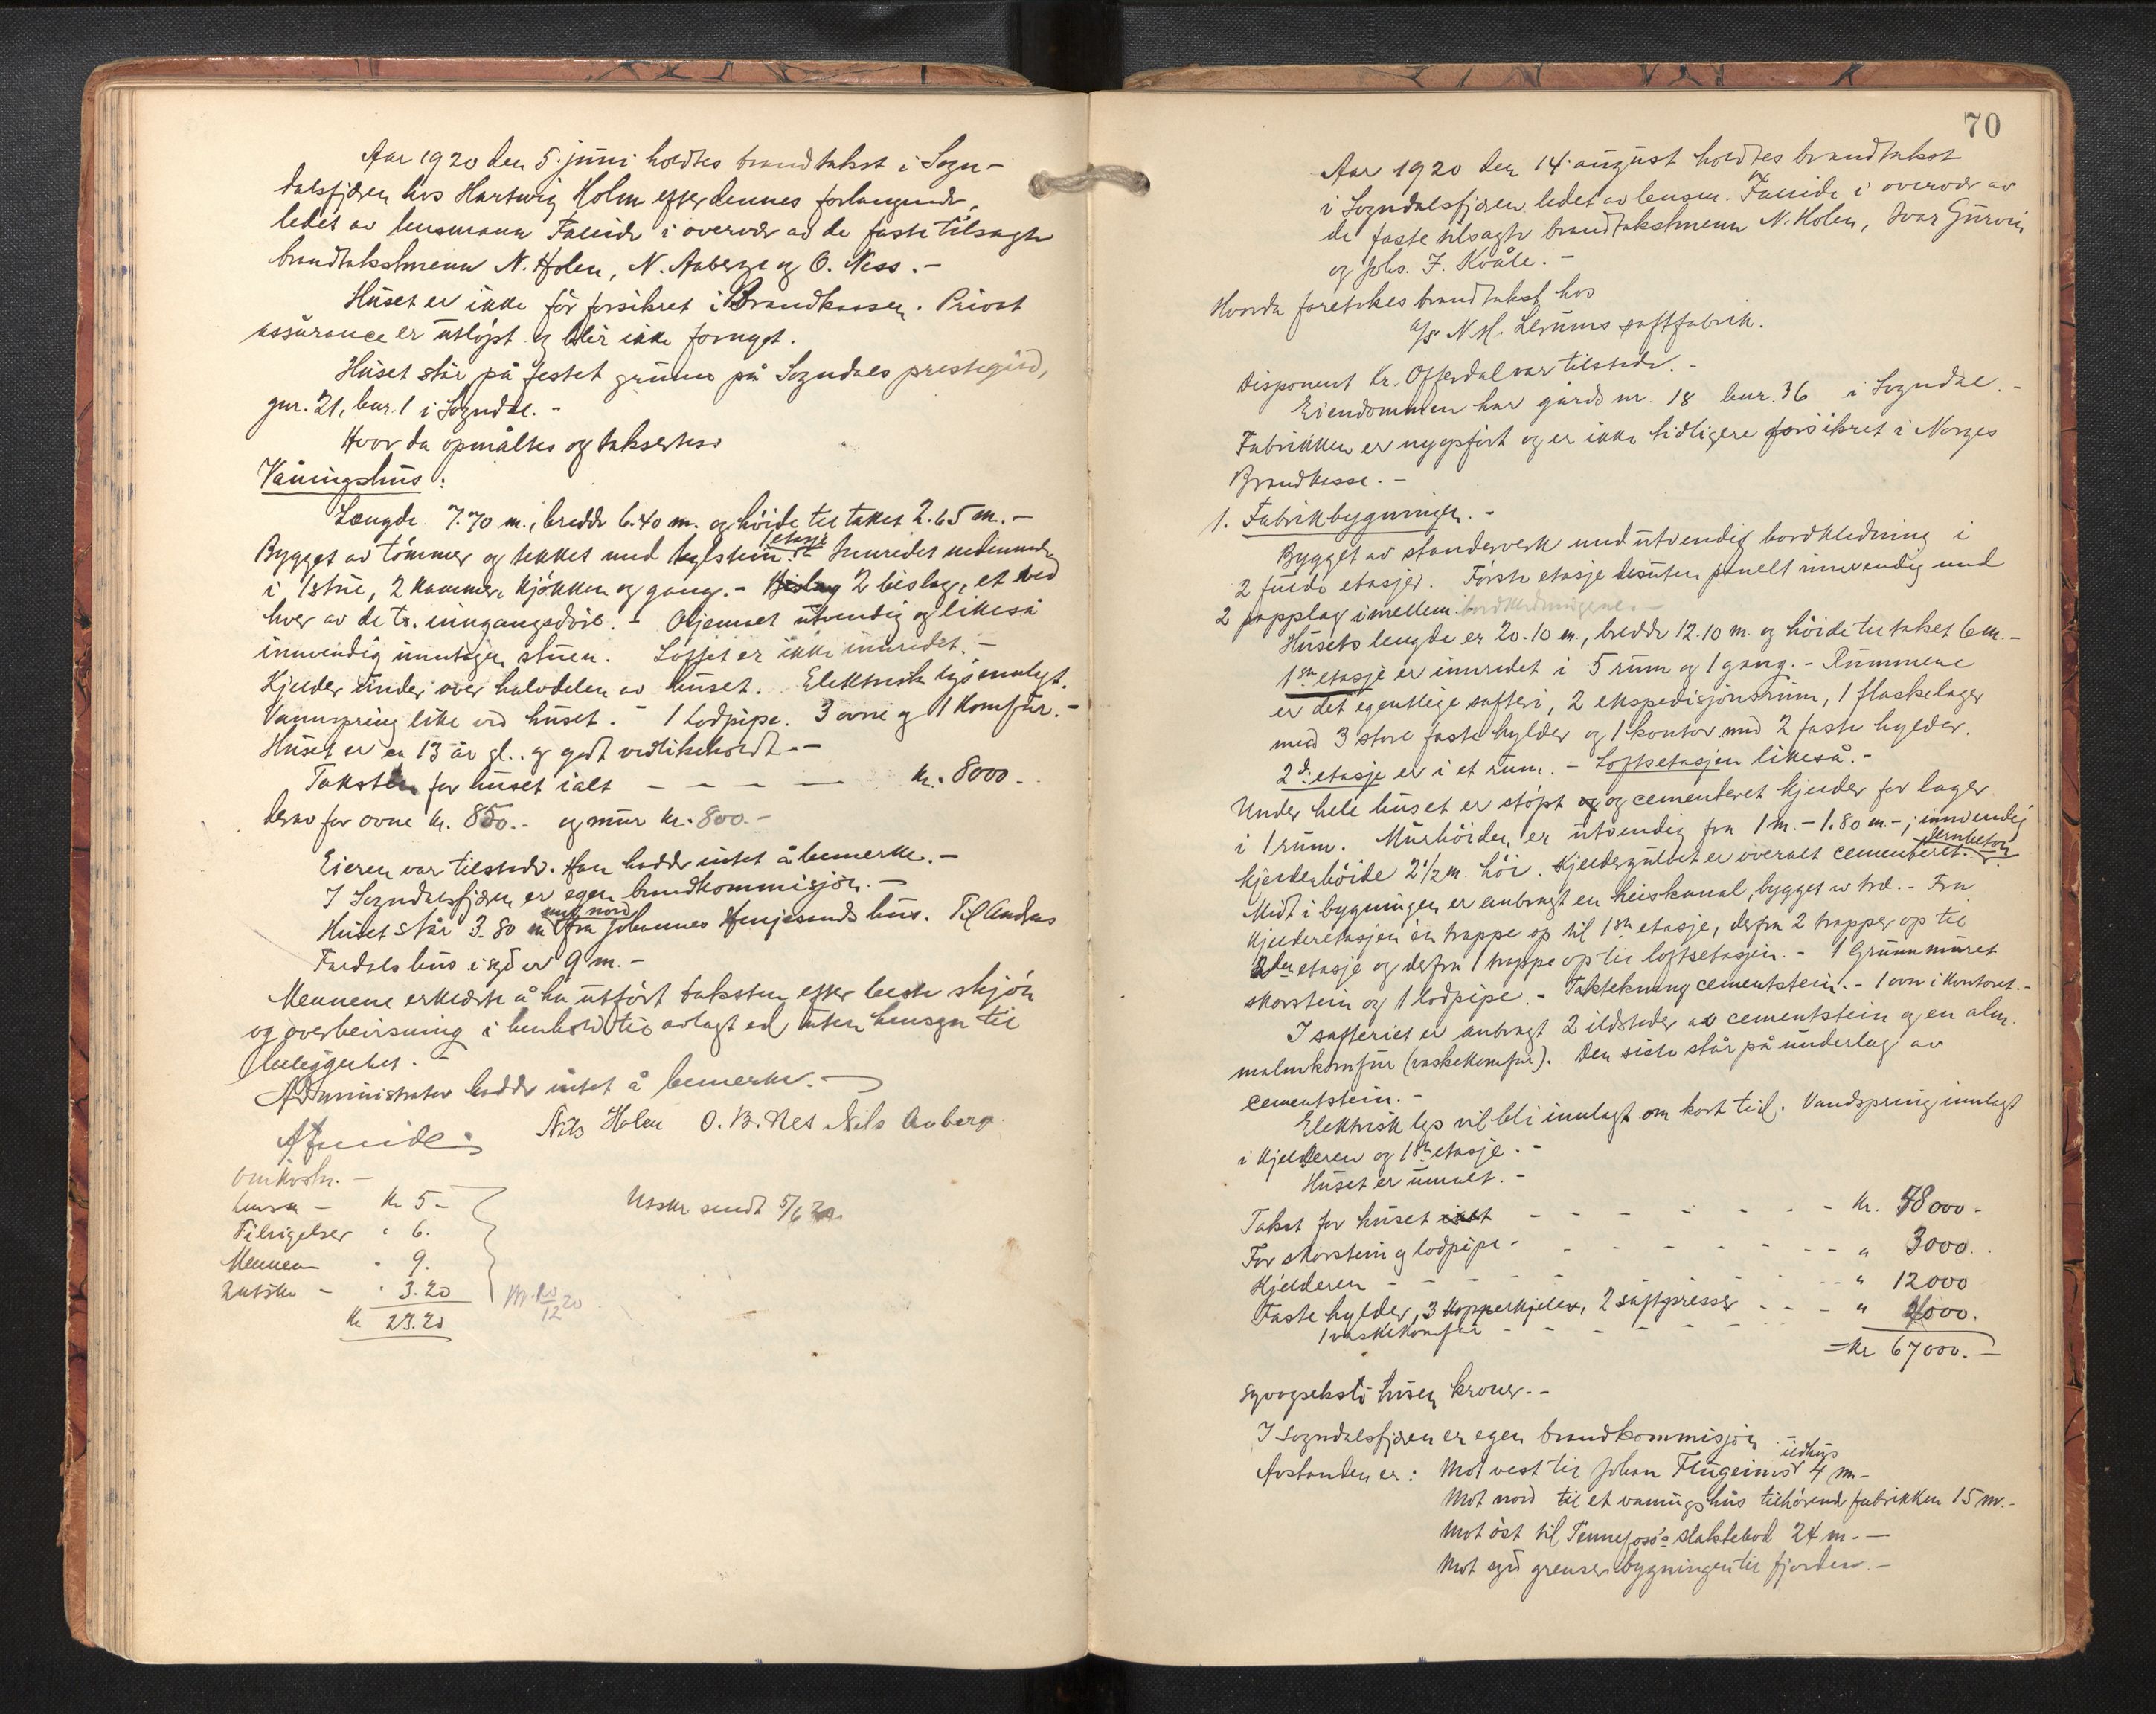 Aar 1920 den 5. juni holdtes brandtakst i Sogn-
dalsfjæren hos Hartvig Holm efter dennes forlangende,
ledet av lensmann Faleide i overvær av de faste tilsagte
brandtakstmenn N. Holen, N. Aaberge og O. Ness. -
Huset er ikke før forsikret i Brandkassen. Privat
assurance er utløpt og blir ikke fornyet.
Huset står på festet grunn på Sogndals prestegård,
gnr. 21, bnr. 1 i Sogndal. -
Hvor da opmåltes og taksertes:
Våningshus:
Længde 7.70 m., bredde 6.40 m. og høide til taket 2.65 m. -
1 etasje
Bygget av tømmer og tekket med teglsten. Innredet nedenunder
i 1 stue, 2 kammer, kjøkken og gang. - Bislag 2 bislag, et ved
hver av de to inngangsdøre. - Oljemalet utvendig og likeså
innvendig unntagen stuen. Loftet er ikke innredet. -
Kjelder under over halvdelen av huset. Elektrisk lys innlagt.
Vannspring like ved huset. - 1 Lodpipe. 3 ovne og 1 Komfur. -
Huset er ca 13 år gl. og godt vedlikeholdt. -
Taksten for huset ialt - - - - - kr. 8000.-
derav for ovne kr. 850.- og mur kr. 800.-
Eieren var tilstede. Han hadde intet å bemerke. -
I Sogndalsfjæren er egen brandkommisjon. -
mot nord
Huset står 3.80 m fra Johannes Henjesands hus. Til Andras
Fardals hus i syd er 9 m. -
Mennene erklærte å ha utført taksten efter beste skjøn
og overbevisning i henhold til avlagt ed uten hensyn til
beliggenhet. -
Administrator hadde intet å bemerke. -
A Faleide
Nils Holen O. B. Nes Nils Aaberg.
Omkostn. -
Lensm - Kr 5 -
Tilsigelser " 6.
Mennene " 9.
Utskr - " 3.20
Kr 23.20
Utskr sendt 5/6 20.
70
Aar 1920 den 14. august holdtes brandtakst
i Sogndalsfjæren ledet av lensm. Falleide i overvær av
de faste tilsagte brandtakstmenn N. Holen, Ivar Gurvin
og Johs. J. Kvåle. -
Hvorda foretokes brandtakst hos
a/s N. H. Lerums saftfabrik.
Disponent Kr. Offerdal var tilstede. -
Eiendommen har gårds nr. 18 bnr. 36 i Sogndal. -
Fabrikken er nyopført og er ikke tidligere forsikret i Norges
Brandkasse. -
1. Fabrikbygningen. -
Bygget av standerverk med utvendig bordkledning i
2 fulde etasjer. Første etasje desuten panelt innvendig med
2 papplag imellem bordkledningene. -
Husets lengde er 20.10 m., bredde 12.10 m. og høide til taket 6 m. -
1ste etasje er innredet i 5 rum og 1 gang. - Rummene
er det egentlige safteri, 2 ekspedisjonsrum, 1 flaskelager
med 3 store faste hylder og 1 kontor med 2 faste hylder.
2d. etasje er i et rum. - Loftsetasjen likeså. -
Under hele huset er støpt og og cementeret kjelder for lager
i 1 rum. Murhøiden er utvendig fra 1 m. - 1.80 m. -; innvendig
jernbeton
kjelderhøide 2 1/2 m. høi. Kjeldergulvet er overalt cementeret.
Midt i bygningen er anbragt en heiskanal, bygget av træ. - Fra
kjelderetasjen én trappe op til 1ste etasje, derfra 2 trapper op til
2den etasje og derfra 1 trappe op til loftsetasjen. - 1 Grunnmuret
skorstein og 1 lodpipe. - Taktekning cementstein. - 1 ovn i kontoret. -
I safteriet er anbragt 2 ildsteder av cementstein og en alm.
malmkomfur (vaskekomfur). Den siste står på underlag av
cementstein. -
Elektrisk lys vil bli innlagt om kort tid. Vandspring innlagt
i kjelderen og 1ste etasje. -
Huset er umalt. -
Takst for huset ialt - - - - - kr. 48000 -
For skorstein og lodpipe - - - - - " 3000.
Kjelderen - - - - - " 12000
Faste hylder, 3 kopperkjeler, 2 saftpresser - - - " 4000.
1 vaskekomfur - - - - -
= Kr 67000. -
syvogseksti tusen kroner. -
I Sogndalsfjæren er egen brandkommisjon
ildhus
Avstanden er: Mot vest til Johan Flugeims 4 m -
Mot nord til et vaningshus tilhørende fabrikken 15 m. -
Mot øst til Tennefoss's slaktebod 24 m. -
Mot syd grenser bygningen til fjorden. -